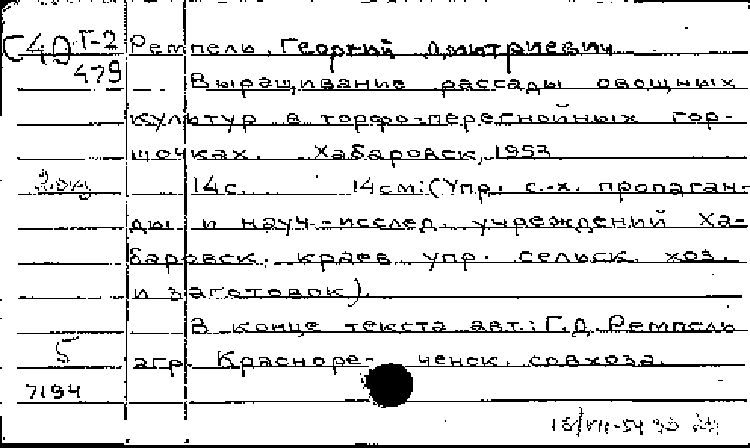 С4О Т-2 Ремпель, Георгий Дмитриевич
479
Выращивание рассады овощных
культур в торфо-перегнойных гор-
шочках. Хабаровск, 1953
14с. 14см. (Упр. с.-х. пропаган-
ды и науч-исслед. учреждений Ха-
баровск. краев. упр. сельск. хоз.
и заготовок).
В конце текста авт.: Г.Д. Ремпель
5
агр. Красноре- ченск. совхоза.
7194
16/VII-54